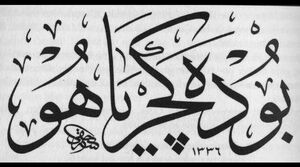 بو ده كچر يا هو
١٣٣٦